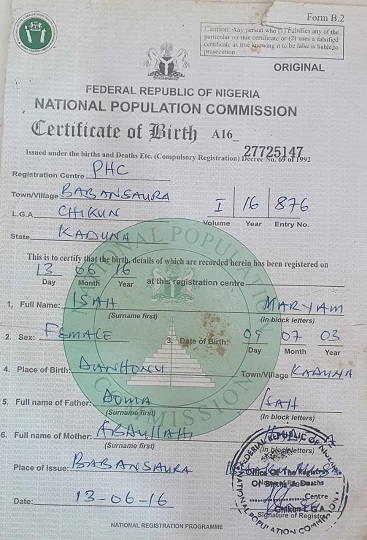 Form B.2
Caution: Any person who (1) Falsifies any of the
particular on this certificate or (2) uses a falsified
certificate as true knowing it to be false is liable to
prosecution
ORIGINAL
FEDERAL REPUBLIC OF NIGERIA
NATIONAL POPULATION COMMISSION
Certificate of Birth A16 27725147
Issued under the births and Deaths Etc. (Compulsory Registration) Decree No. 69 of 1992
Registration Centre PHC
Town/Village BABANSAURA
I 16 876
Volume Year Entry No.
L.G.A CHIKUN
State KADUNA
This is to certify that the birth, details of which are recorded herein has been registered on
13 06 16 at this registration centre
Day Month Year
1, Full Name: ISAH MARYAM
(Surname first) (In block letters)
2. Sex: FEMALE 3. Date of Birth: 09 07 03
Day Month Year
4. Place of Birth: Town/Village KADUNA
5. Full name of Father: ISAH
(Surname first) (In block letters)
6. Full name of Mother:
(Surname first) (In block letters)
Place of Issue: BABANSAURA
Office Of The Registrar
Of Births & Deaths
Centre
Signature of Registrar
Date: 13-06-16
NATIONAL REGISTRATION PROGRAMME
NATIONAL POPULATION COMMISSION